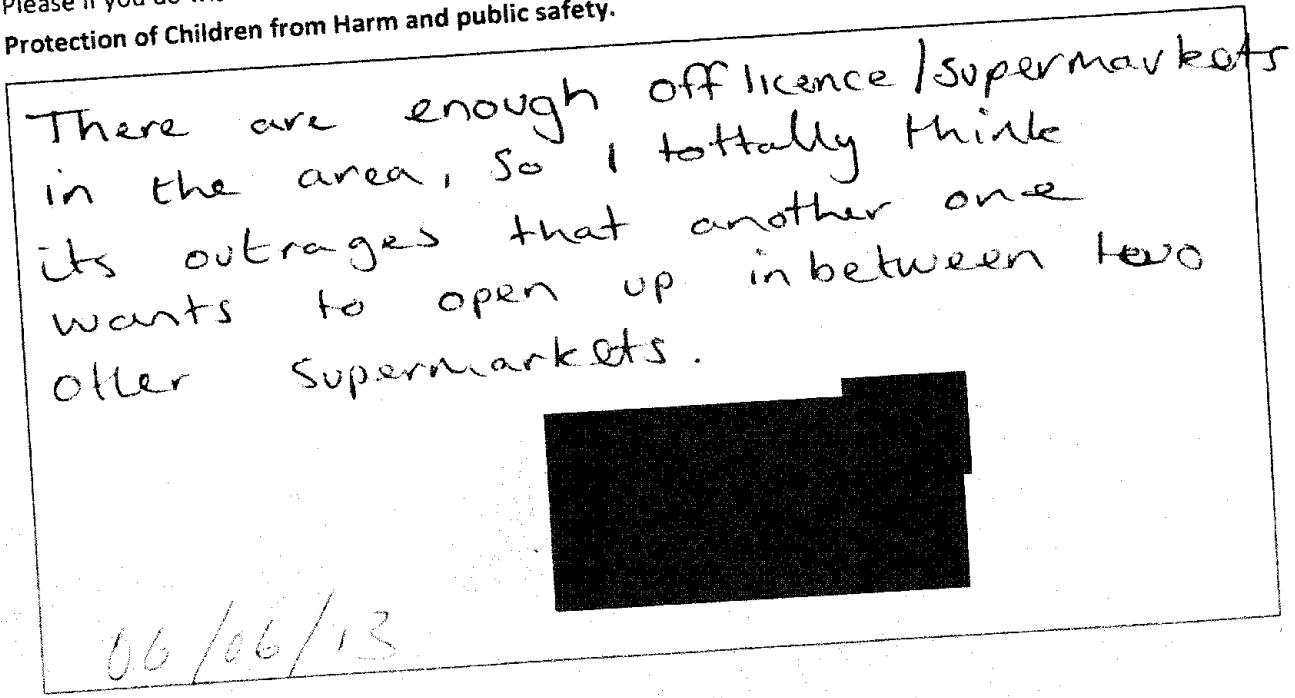 Please if you do
Protection of Children from Harm and public safety.
There are enough off licence/supermarkets
in the area, So I tottally think
its outrages that another one
wants to open up inbetween two
other Supermarkets.
06/06/13